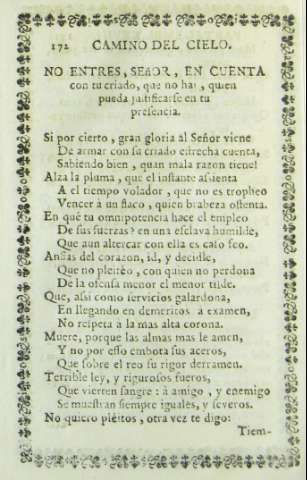 172 CAMINO DEL CIELO.
NO ENTRES, SEñOR, EN CUENTA
con tu criado, que no hai, quien
pueda justificarse en tu
presencia.
Si por cierto, gran gloria al Señor viene
De armar con su criado estrecha cuenta,
Sabiendo bien, quan mala razon tiene!
Alza la pluma, que el instante assienta
A el tiempo volador, que no es tropheo
Vencer à un flaco, quien braveza ostenta.
En què tu omnipotencia hace el empleo
De sus fuerzas? en una esclava humilde,
Que aun altercar con ella es caso feo.
Ansias del corazon, id, y decidle,
Que no pleitèo, con quien no perdona
De la ofensa menor el menor tilde.
Que, assi como servicios galardona,
En llegando en demeritos a examen,
No respeta à la mas alta corona.
Muere, porque las almas mas le amen,
Y no por esso embota sus aceros,
Que sobre el reo su rigor derramen.
Terrible ley, y rigurosos fueros,
Que vierten sangre: à amigo, y enemigo
Se muestran siempre iguales, y severos.
No quiero pleitos, otra vez te digo:
Tiem-